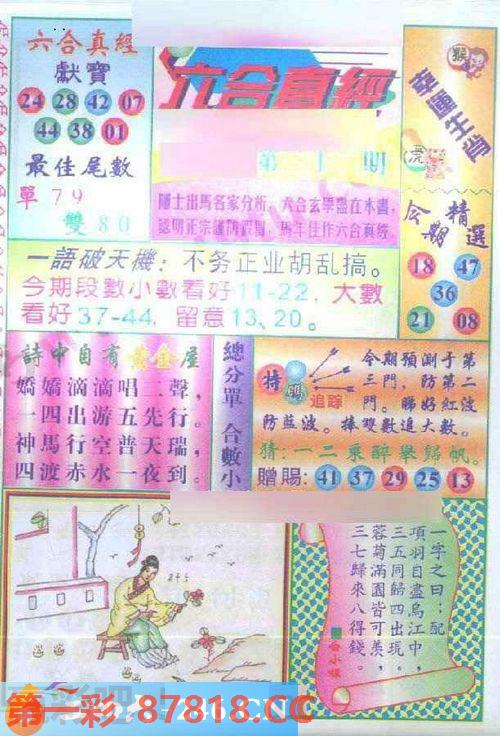 六合真經
獻寶
24 28 42 07
44 38 01
最佳尾數
單79
雙80
六合真經
第 十 期
隱士出馬名家分析，六合玄學盡在本書，
認明正宗謹防假冒，馬年佳作六合真經。
幸運生肖
猴
虎
今期精選
18 47
36
21 08
一語破天機：不务正业胡乱搞。
今期段數小數看好11-22，大數
看好37-44，留意13、20。
詩中自有黃金屋
嬌嬌滴滴唱二聲，
一四出游五先行。
神馬行空普天瑞，
四渡赤水一夜到。
總分單 合數小
特碼
追踪
今期預測于第
三門，防第二
門。睇好紅波
防蓝波。捧雙數追大數。
猜：一二乘醉舉歸帆。
贈賜：41 37 29 25 13
一字之曰：配
項羽自盡烏江中，
三五同歸四出現。
蓉菊滿園皆可羨，
三七歸來八得錢。
第一彩 87818.CC